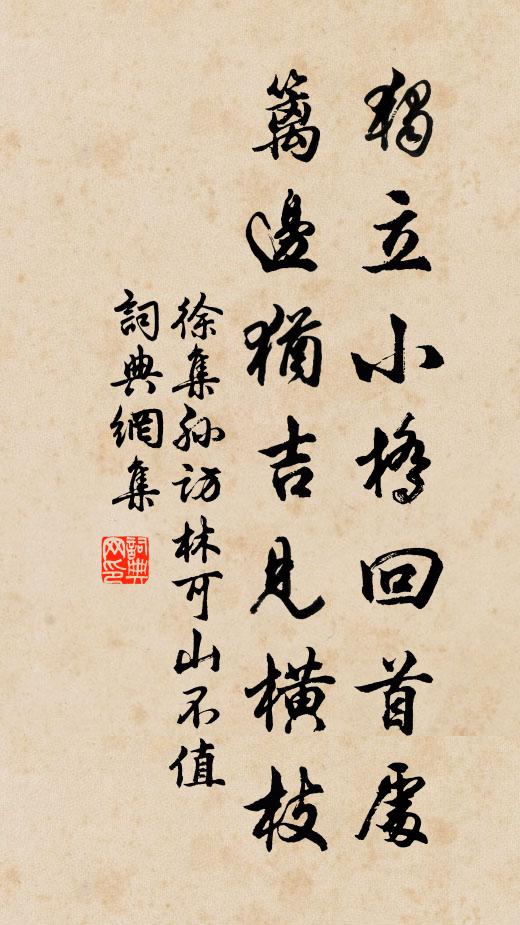 獨立小橋回首處
籬邊猶吉見橫枝
徐集孙訪林可山不值
詞典網集
詞典
网印